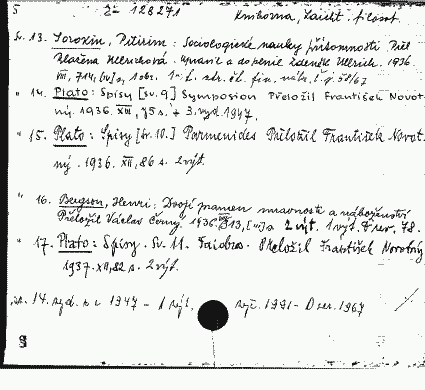 5 Z- 128271 Knihovna, Laicht. filosof.
Sv. 13. Sorokin, Pitirim: Sociologické nauky přítomnosti Přel
Blažena Ullrichová. Upravil a doplnil Zdeněk Ullrich. 1936.
VIII, 714, [IV] s, 1 obr.
" 14. Plato: Spisy [sv. 9] Symposion Přeložil František Novot-
ný. 1936. XIII, 75 s. + 3. vyd. 1947.
" 15. Plato: Spisy [sv. 10.] Parmenides Přeložil František Novot-
ný. 1936. XII, 86 s. 2 výt.
" 16. Bergson, Henri: Dvojí pramen mravnosti a náboženství
Přeložil Václav Černý. 1936. 313, s. 2 výt. 1 výt. rev. 78.
" 17. Plato: Spisy. Sv. 11. Faidros. Přeložil František Novotný
1937. XII, 82 s. 2 výt.
sv. 14. vyd. z r 1947 - 1 výt. 1967